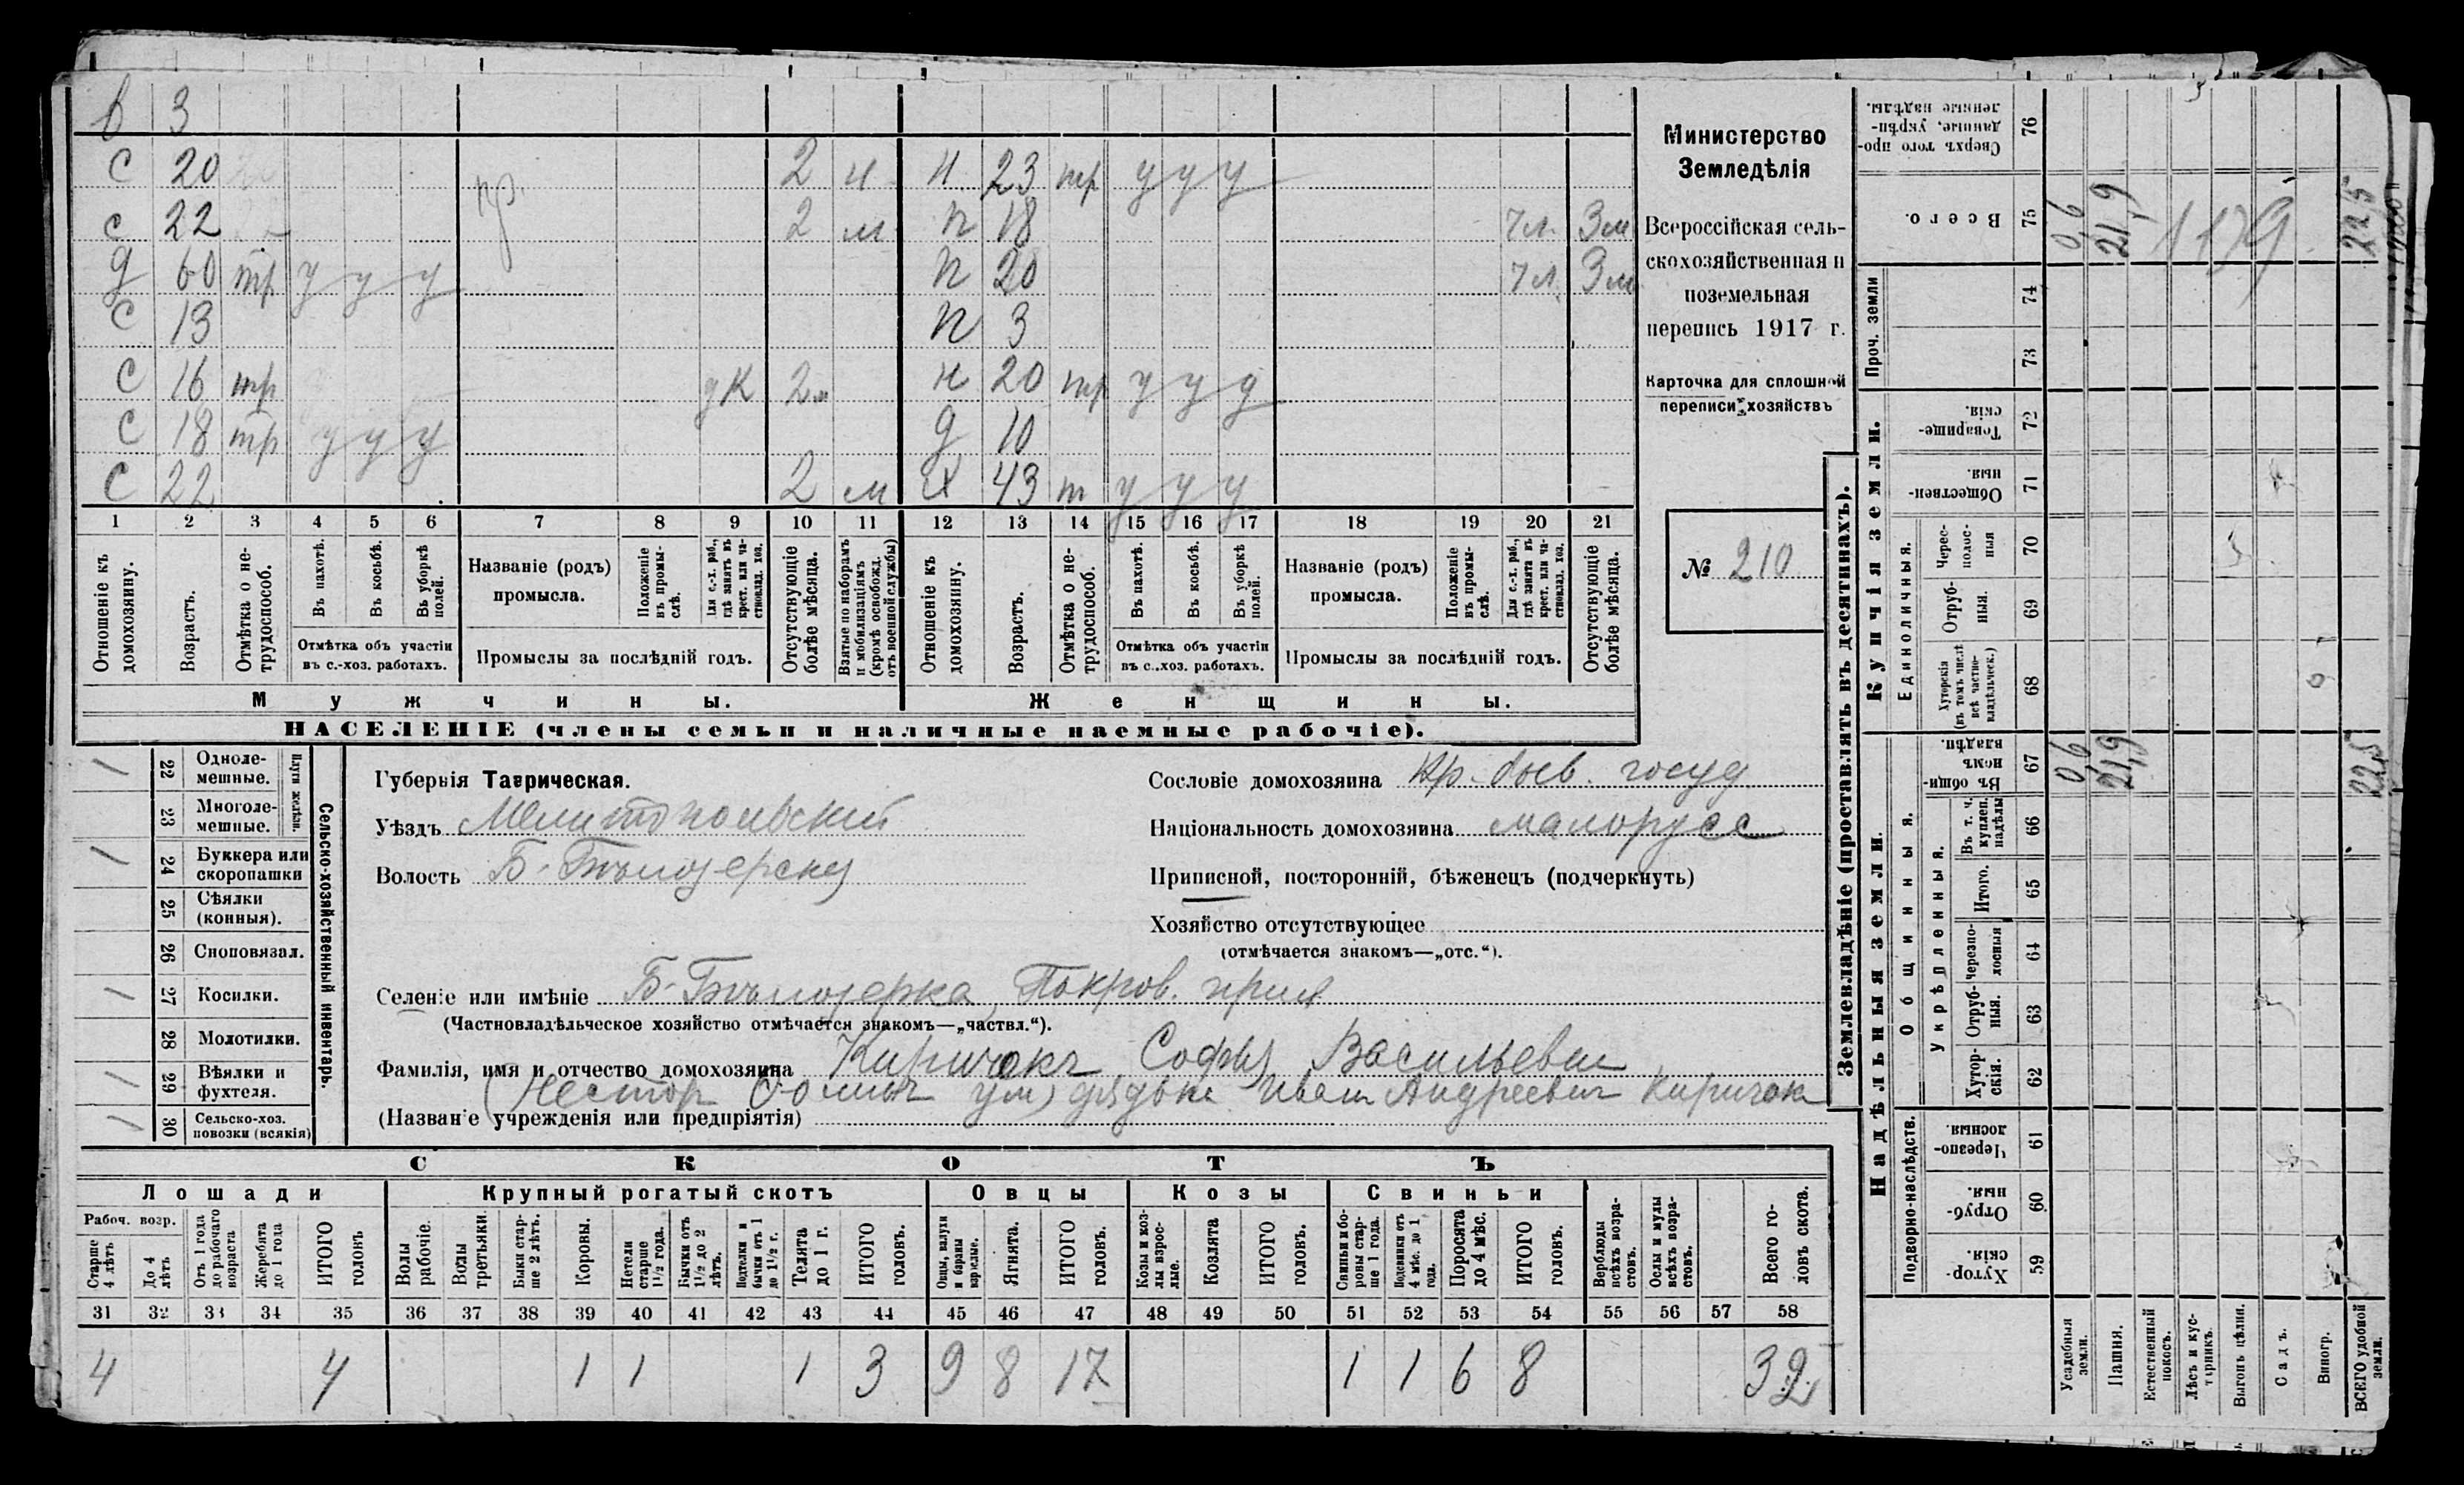 в 3
с 20 2 м н. 23 тр у у у
с 22 пр. 2 м п 18 ч.л. 3м
д 60 тр у у у п 20 ч.л. 3м
с 13 п 3
с 16 тр К 2м н 20 тр у у у
с 18 тр у у у д 10
с 22 2 м х 43 т у у у
1 2 3 4 5 6 7 8 9 10 11 12 13 14 15 16 17 18 19 20 21
Отношеніе къ домохозяину.
Возрастъ.
Отмѣтка о нетрудоспособ.
Въ пахотѣ.
Въ косьбѣ.
Въ уборкѣ полей.
Отмѣтка объ участіи
въ с.-хоз. работахъ.
Названіе (родъ)
промысла.
Положеніе въ промыслѣ.
Для с.-х. раб., гдѣ занятъ въ крест. или частновлад. хоз.
Промыслы за послѣдній годъ.
Отсутствующіе болѣе мѣсяца.
Взятые по наборамъ и мобилизаціямъ (кромѣ освобожд. отъ военной службы)
Отношеніе къ домохозяину.
Возрастъ.
Отмѣтка о нетрудоспособ.
Въ пахотѣ.
Въ косьбѣ.
Въ уборкѣ полей.
Отмѣтка объ участіи
въ с.-хоз. работахъ.
Названіе (родъ)
промысла.
Положеніе въ промыслѣ.
Для с.-х. раб., гдѣ занята въ крест. или частновлад. хоз.
Промыслы за послѣдній годъ.
Отсутствующіе болѣе мѣсяца.
Мужчины. Женщины.
НАСЕЛЕНІЕ (члены семьи и наличные наемные рабочіе).
Министерство
Земледѣлія
Всероссійская сель-
скохозяйственная и
поземельная
перепись 1917 г.
Карточка для сплошной
переписи хозяйствъ
№ 210
Сельско-хозяйственный инвентарь.
Плуги желѣзн.
/ 22 Одноле-
мешные.
23 Многоле-
мешные.
/ 24 Буккера или
скоропашки
25 Сѣялки
(конныя).
26 Сноповязал.
/ 27 Косилки.
28 Молотилки.
/ 29 Вѣялки и
фухтеля.
/ 30 Сельско-хоз.
повозки (всякія)
Губернія Таврическая.
Уѣздъ Мелитопольскій
Волость Б-Бѣлозерск
Сословіе домохозяина Кр. быв. госуд
Національность домохозяина малорусс
Приписной, посторонній, бѣженецъ (подчеркнуть)
Хозяйство отсутствующее
(отмѣчается знакомъ—„отс.“).
Селеніе или имѣніе Б-Бѣлозерка, Покров. прих
(Частновладѣльческое хозяйство отмѣчается знакомъ—„частвл.“).
Фамилія, имя и отчество домохозяина Киричокъ Софія Васильевн
(Нестор Фомич ум) дядька Иван Андреевич Киричок
(Названіе учрежденія или предпріятія)
СКОТЪ
Лошади Крупный рогатый скотъ Овцы Козы Свиньи
Рабоч. возр.
Старше 4 лѣтъ
До 4 лѣтъ
Отъ 1 года до рабочаго возраста
Жеребята до 1 года
ИТОГО головъ
Волы рабочіе.
Волы третьяки.
Быки старше 2 лѣтъ.
Коровы.
Нетели старше 1½ года.
Бычки отъ 1½ до 2 лѣтъ.
Подтелки и бычки отъ 1 до 1½ г.
Телята до 1 г.
ИТОГО головъ.
Овцы, валухи и бараны взрослые.
Ягнята.
ИТОГО головъ.
Козы и козлы взрослые.
Козлята
ИТОГО головъ.
Свиньи и боровы старше 1 года.
Подсвинки отъ 4 мѣс. до 1 года.
Поросята до 4 мѣс.
ИТОГО головъ.
Верблюды всѣхъ возрастовъ.
Ослы и мулы всѣхъ возрастовъ.
Всего головъ скота.
31 32 33 34 35 36 37 38 39 40 41 42 43 44 45 46 47 48 49 50 51 52 53 54 55 56 57 58
4 4 1 1 1 3 9 8 17 1 1 6 8 32
Землевладѣніе (проставлять въ десятинахъ).
Купчія земли.
Надѣльныя земли.
Сверхъ того проданные, укрѣпленные надѣлы. 76
Всего. 75 0,6 21,9 179 22,5
Проч. земли
74
73
Товарищескія. 72
Общественныя. 71
Единоличныя.
Чресполосныя 70
Отрубныя. 69
Хуторскія (въ томъ числѣ всѣ частновладѣльческ.) 68
Общинныя.
Въ общинномъ владѣн. 67 0,6 21,9 22,5
Укрѣпленныя.
Въ т. ч. куплен. надѣлы 66
Итого. 65
Черезполосныя 64
Отрубныя. 63
Хуторскія. 62
Подворно-наслѣдств.
Черезполосныя. 61
Отрубныя. 60
Хуторскія. 59
Усадебныя земли.
Пашня.
Естественный покосъ.
Лѣсъ и кустарникъ.
Выгонъ цѣлин.
Садъ.
Виногр.
ВСЕГО удобной земли.